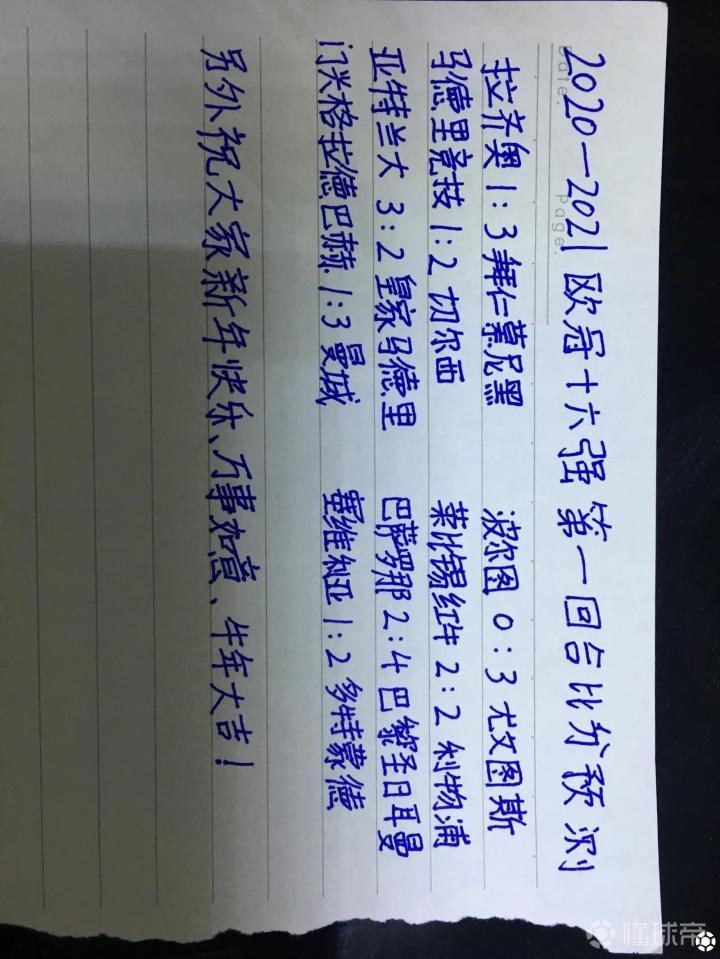 Date.
Page.
2020—2021欧冠十六强第一回合比分预测
拉齐奥 1:3 拜仁慕尼黑 波尔图 0:3 尤文图斯
马德里竞技 1:2 切尔西 莱比锡红牛 2:2 利物浦
亚特兰大 3:2 皇家马德里 巴萨罗那 2:4 巴黎圣日耳曼
门兴格拉德巴赫 1:3 曼城 塞维利亚 1:2 多特蒙德
另外祝大家新年快乐、万事如意、牛年大吉!
懂球帝